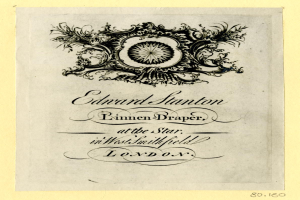 Edward Stanton
Linnen Draper,
at the Star,
in West Smithfield
LONDON.